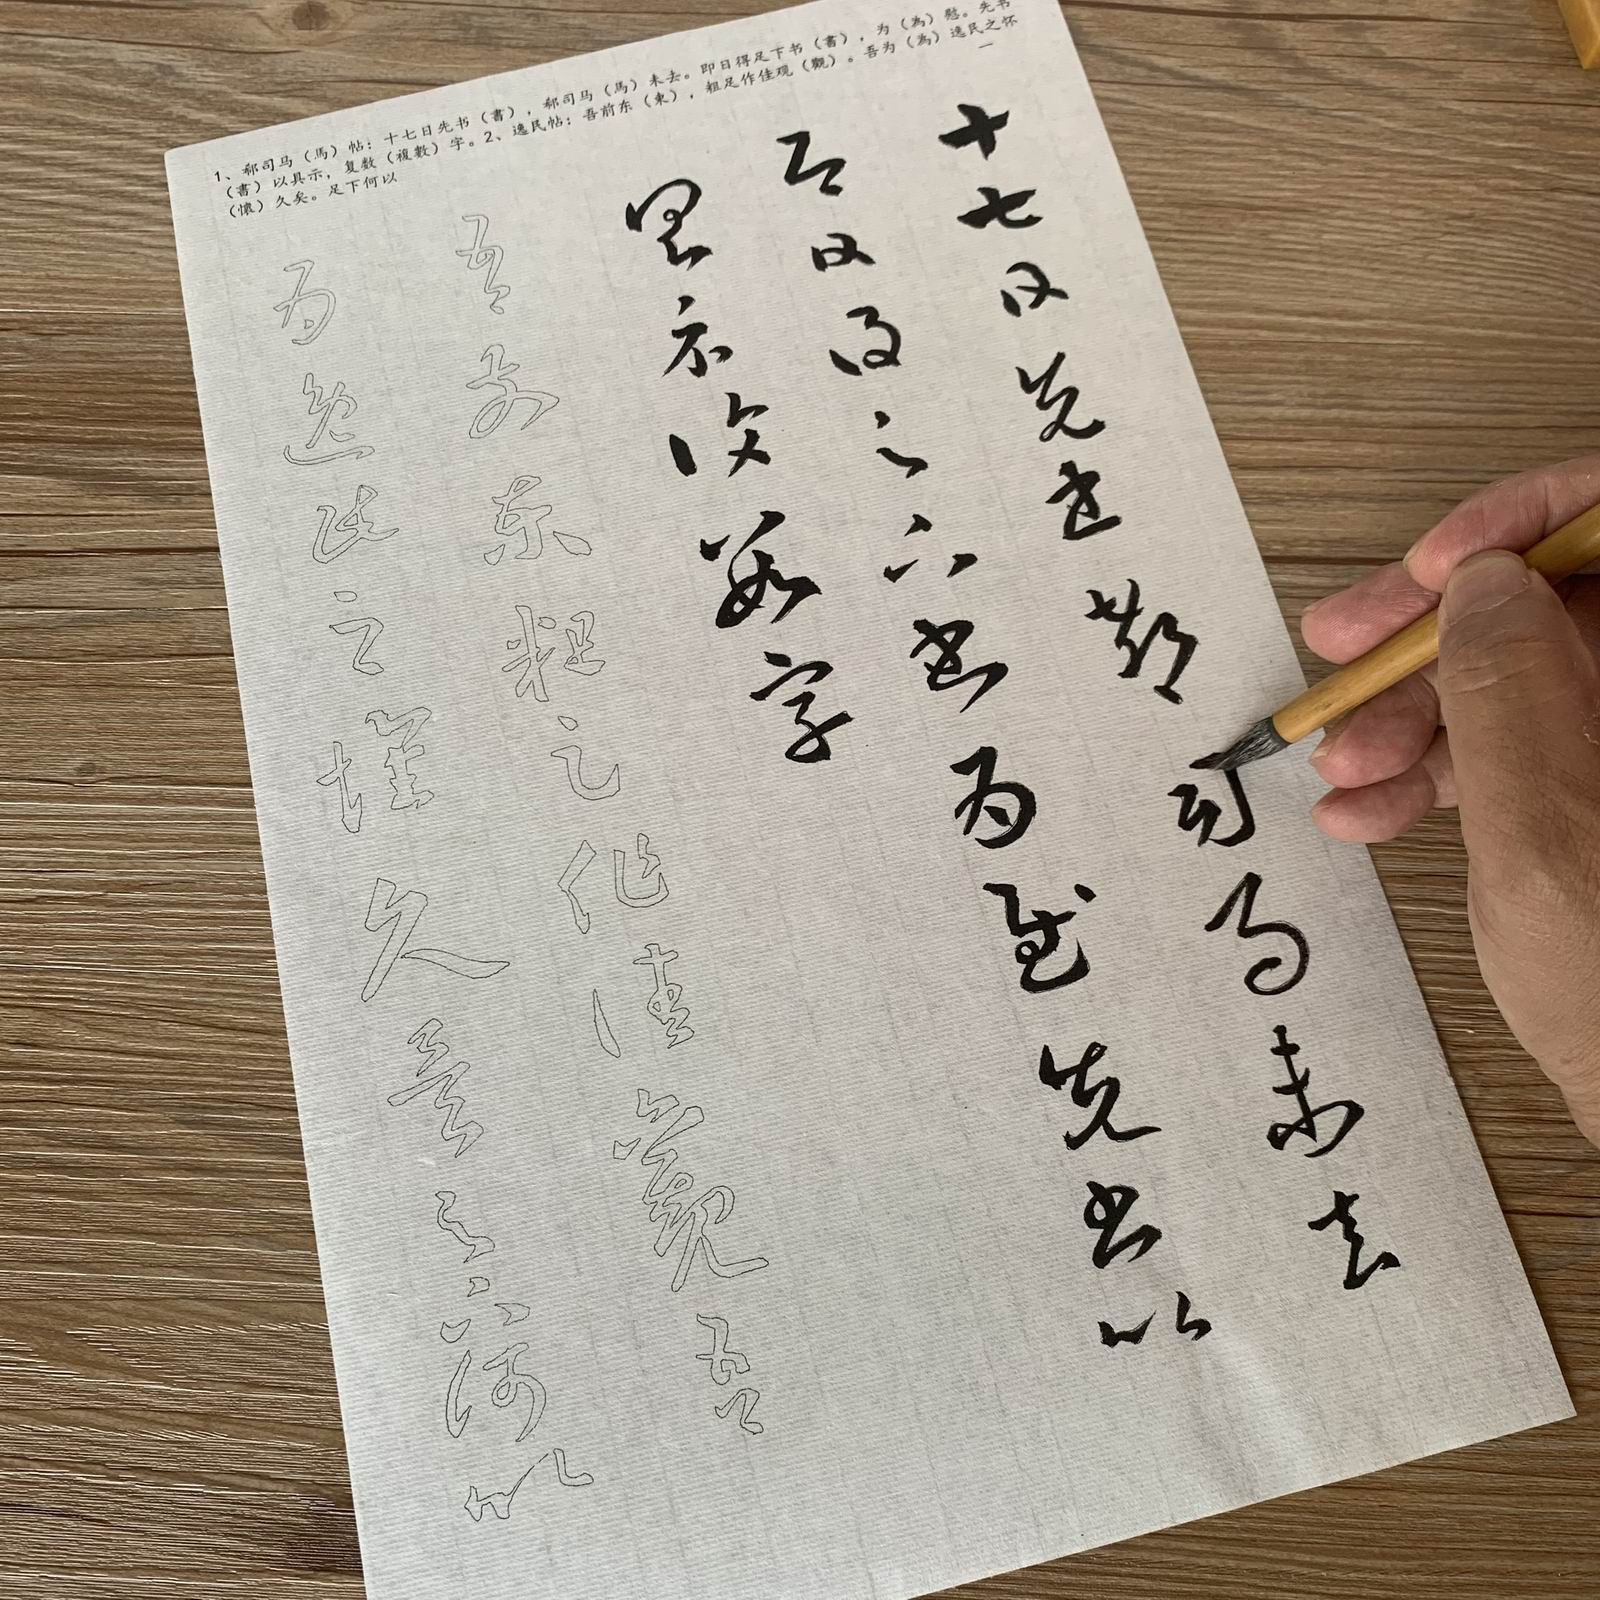 1、郗司马（馬）帖：十七日先书（書），郗司马（馬）未去。即日得足下书（書），为（為）慰。先书
（書）以具示，复数（複數）字。2、逸民帖：吾前东（東），粗足作佳观（觀）。吾为（為）逸民之怀
（懷）久矣。足下何以
一
十七日先书郗司马未去
即日得足下书为慰先书以
具示复数字
吾前东粗足作佳观吾
为逸民之怀久矣足下何以